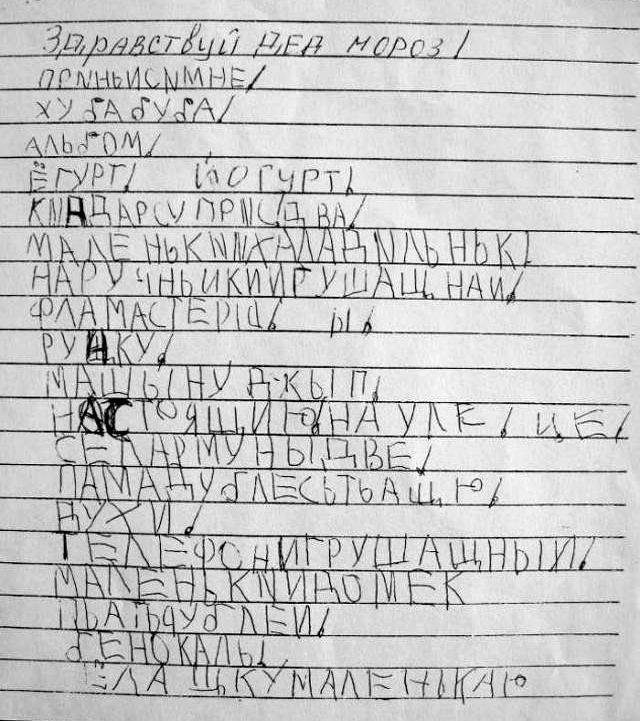 ЗДРАВСТВУЙ ДЕД МОРОЗ!
ПРИНЬИСИМНЕ!
ХУБАБУБА!
АЛЬБОМ!
ЕГУРТ! ЙОГУРТ!
КИНДАРСУПРИСДВА!
МАЛЕНЬКИИХАЛАДИЛЬНЬК!
НАРУЧНЬИКИИГРУШАЩНАИ!
ФЛАМАСТЕРЫ! Ы!
РУЧКУ!
МАШЫНУ ДЖЫП!
НАСТОЯЩИЮ!НА УЛЕ! ЦЕ!
СЕЛАРМУНЫДВЕ!
ПАМАДУБЛЕСЬТЬАЩЮ!
ДУХИ!
ТЕЛЕФОНИГРУШАЩНЫЙ!
МАЛЕНЬКИИДОМЕК
ЦЬАТЬРУБЛЕИ!
БЕНОКАЛЬ!
ЁЛАЩЬКУМАЛЕНЬКАЮ